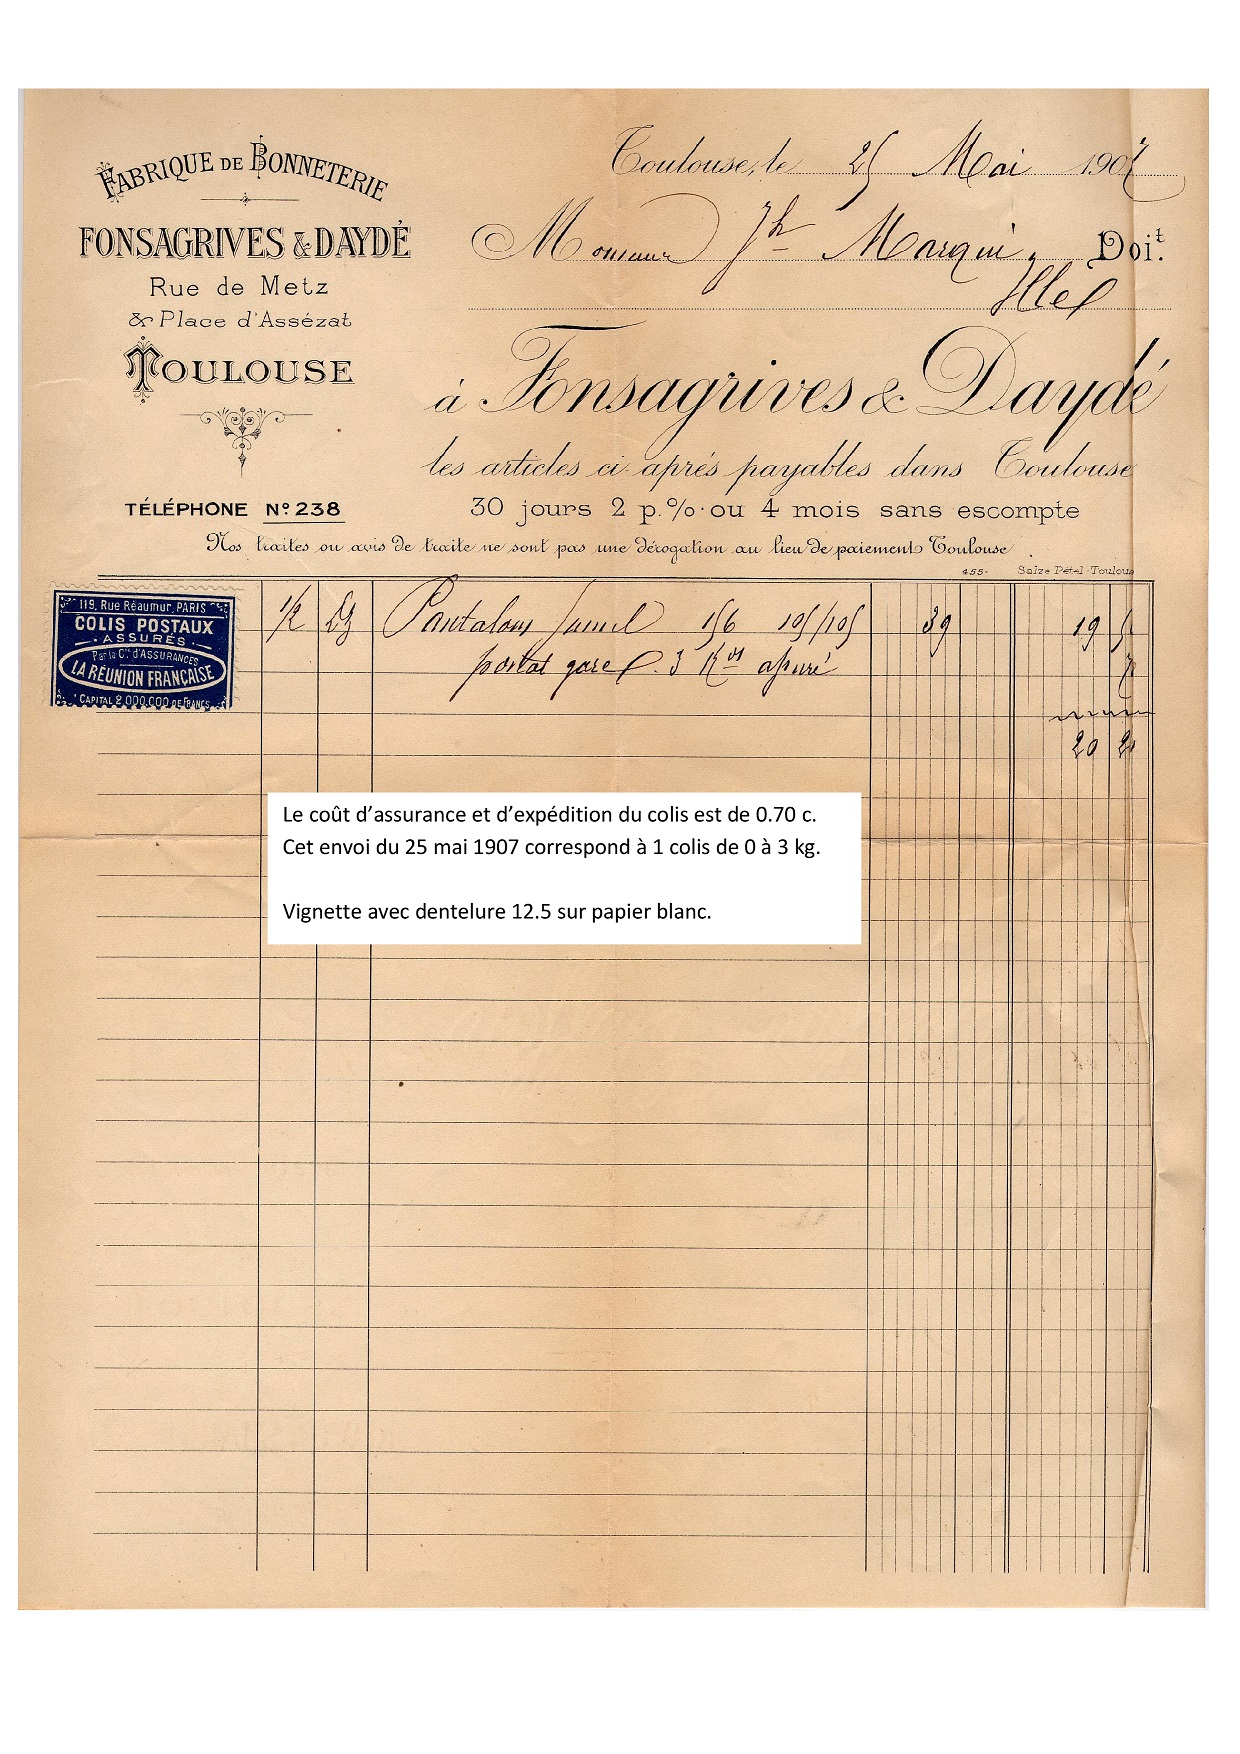 FABRIQUE DE BONNETERIE
FONSAGRIVES & DAYDÉ
Rue de Metz
& Place d'Assézat
TOULOUSE
TÉLÉPHONE Nº 238
Toulouse, le 25 Mai 1907
Monsieur Jh Marqui, Doit.
Illes
à Fonsagrives & Daydé
les articles ci-après payables dans Toulouse
30 jours 2 p.% ou 4 mois sans escompte
Nos traites ou avis de traite ne sont pas une dérogation au lieu de paiement Toulouse
455- Salze Pétel Toulouse
119, Rue Réaumur, PARIS
COLIS POSTAUX
ASSURÉS
Par la Cie d'ASSURANCES
LA RÉUNION FRANÇAISE
CAPITAL 2.000.000 DE FRANCS
1/2 Dz Pantalons Jumel 156 105/105 39 19 5
postal gare 3 Kos assuré 7
20 2
Le coût d'assurance et d'expédition du colis est de 0.70 c.
Cet envoi du 25 mai 1907 correspond à 1 colis de 0 à 3 kg.
Vignette avec dentelure 12.5 sur papier blanc.